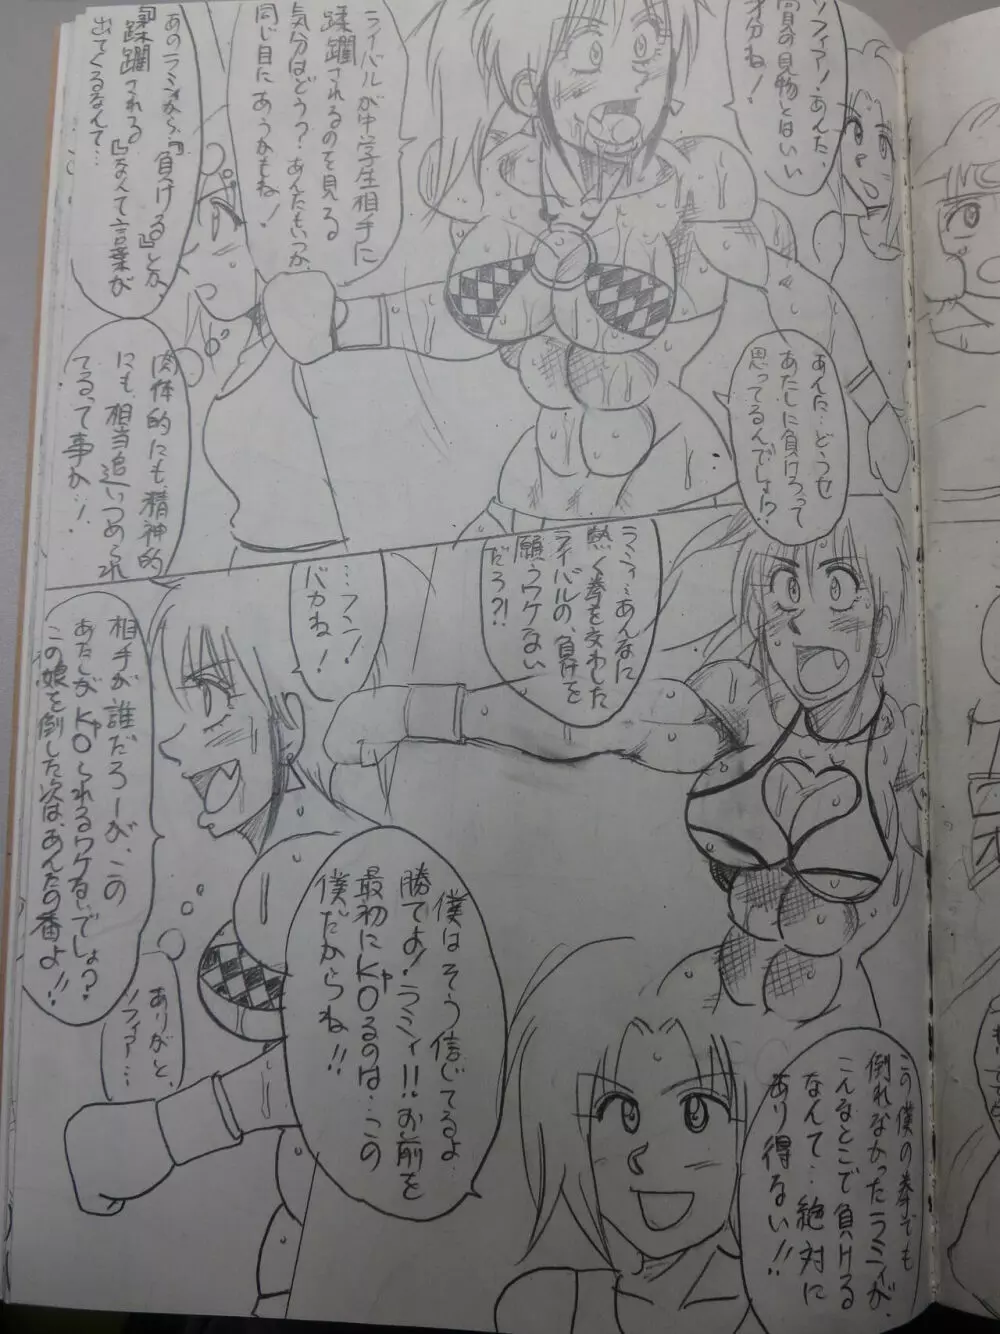 ソフィア！あんた、
高見の見物とはいい
身分ね！
ライバルが中学生相手に
蹂躙されるのを見る
気分はどう？あんたもいつか、
同じ目にあうかもね！
あのラミィから『負ける』とか、
『蹂躙される』なんて言葉が
出てくるなんて…
肉体的にも精神的
にも、相当追いつめられ
てるって事か…！
あんた…どうせ
あたしに負けろって
思ってるんでしょ！？
ラミィ…あんなに
熱く拳を交わした
ライバルの、負けを
願うワケない
だろ？！
…フン！
バカね！
相手が誰だろーが、この
あたしがKOられるワケないでしょ？
キャ
この娘を倒した次は、あんたの番よ！！
ありがと、
ソフィア…
この僕の拳でも
倒れなかったラミィが、
こんなとこで負ける
なんて…絶対に
あり得ない！！
僕はそう信じてるよ…
勝てよ！ラミィ！！お前を
最初にKOるのは、この
キャ
僕だからね！！